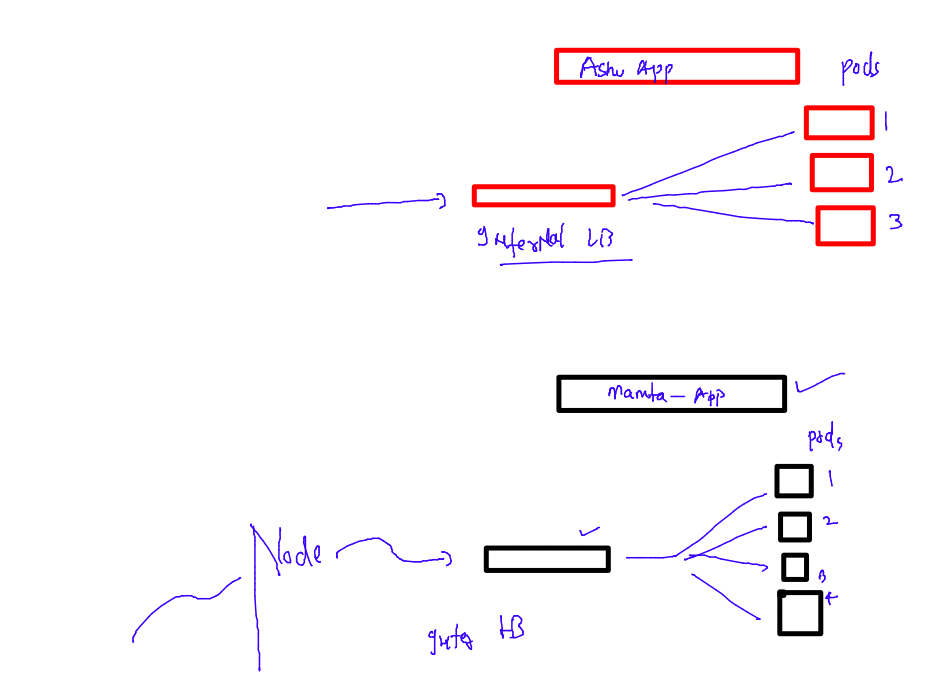 Ashu App
pods
1
2
3
Internal LB
mamta - App
pods
1
2
3
4
Node
Inter LB